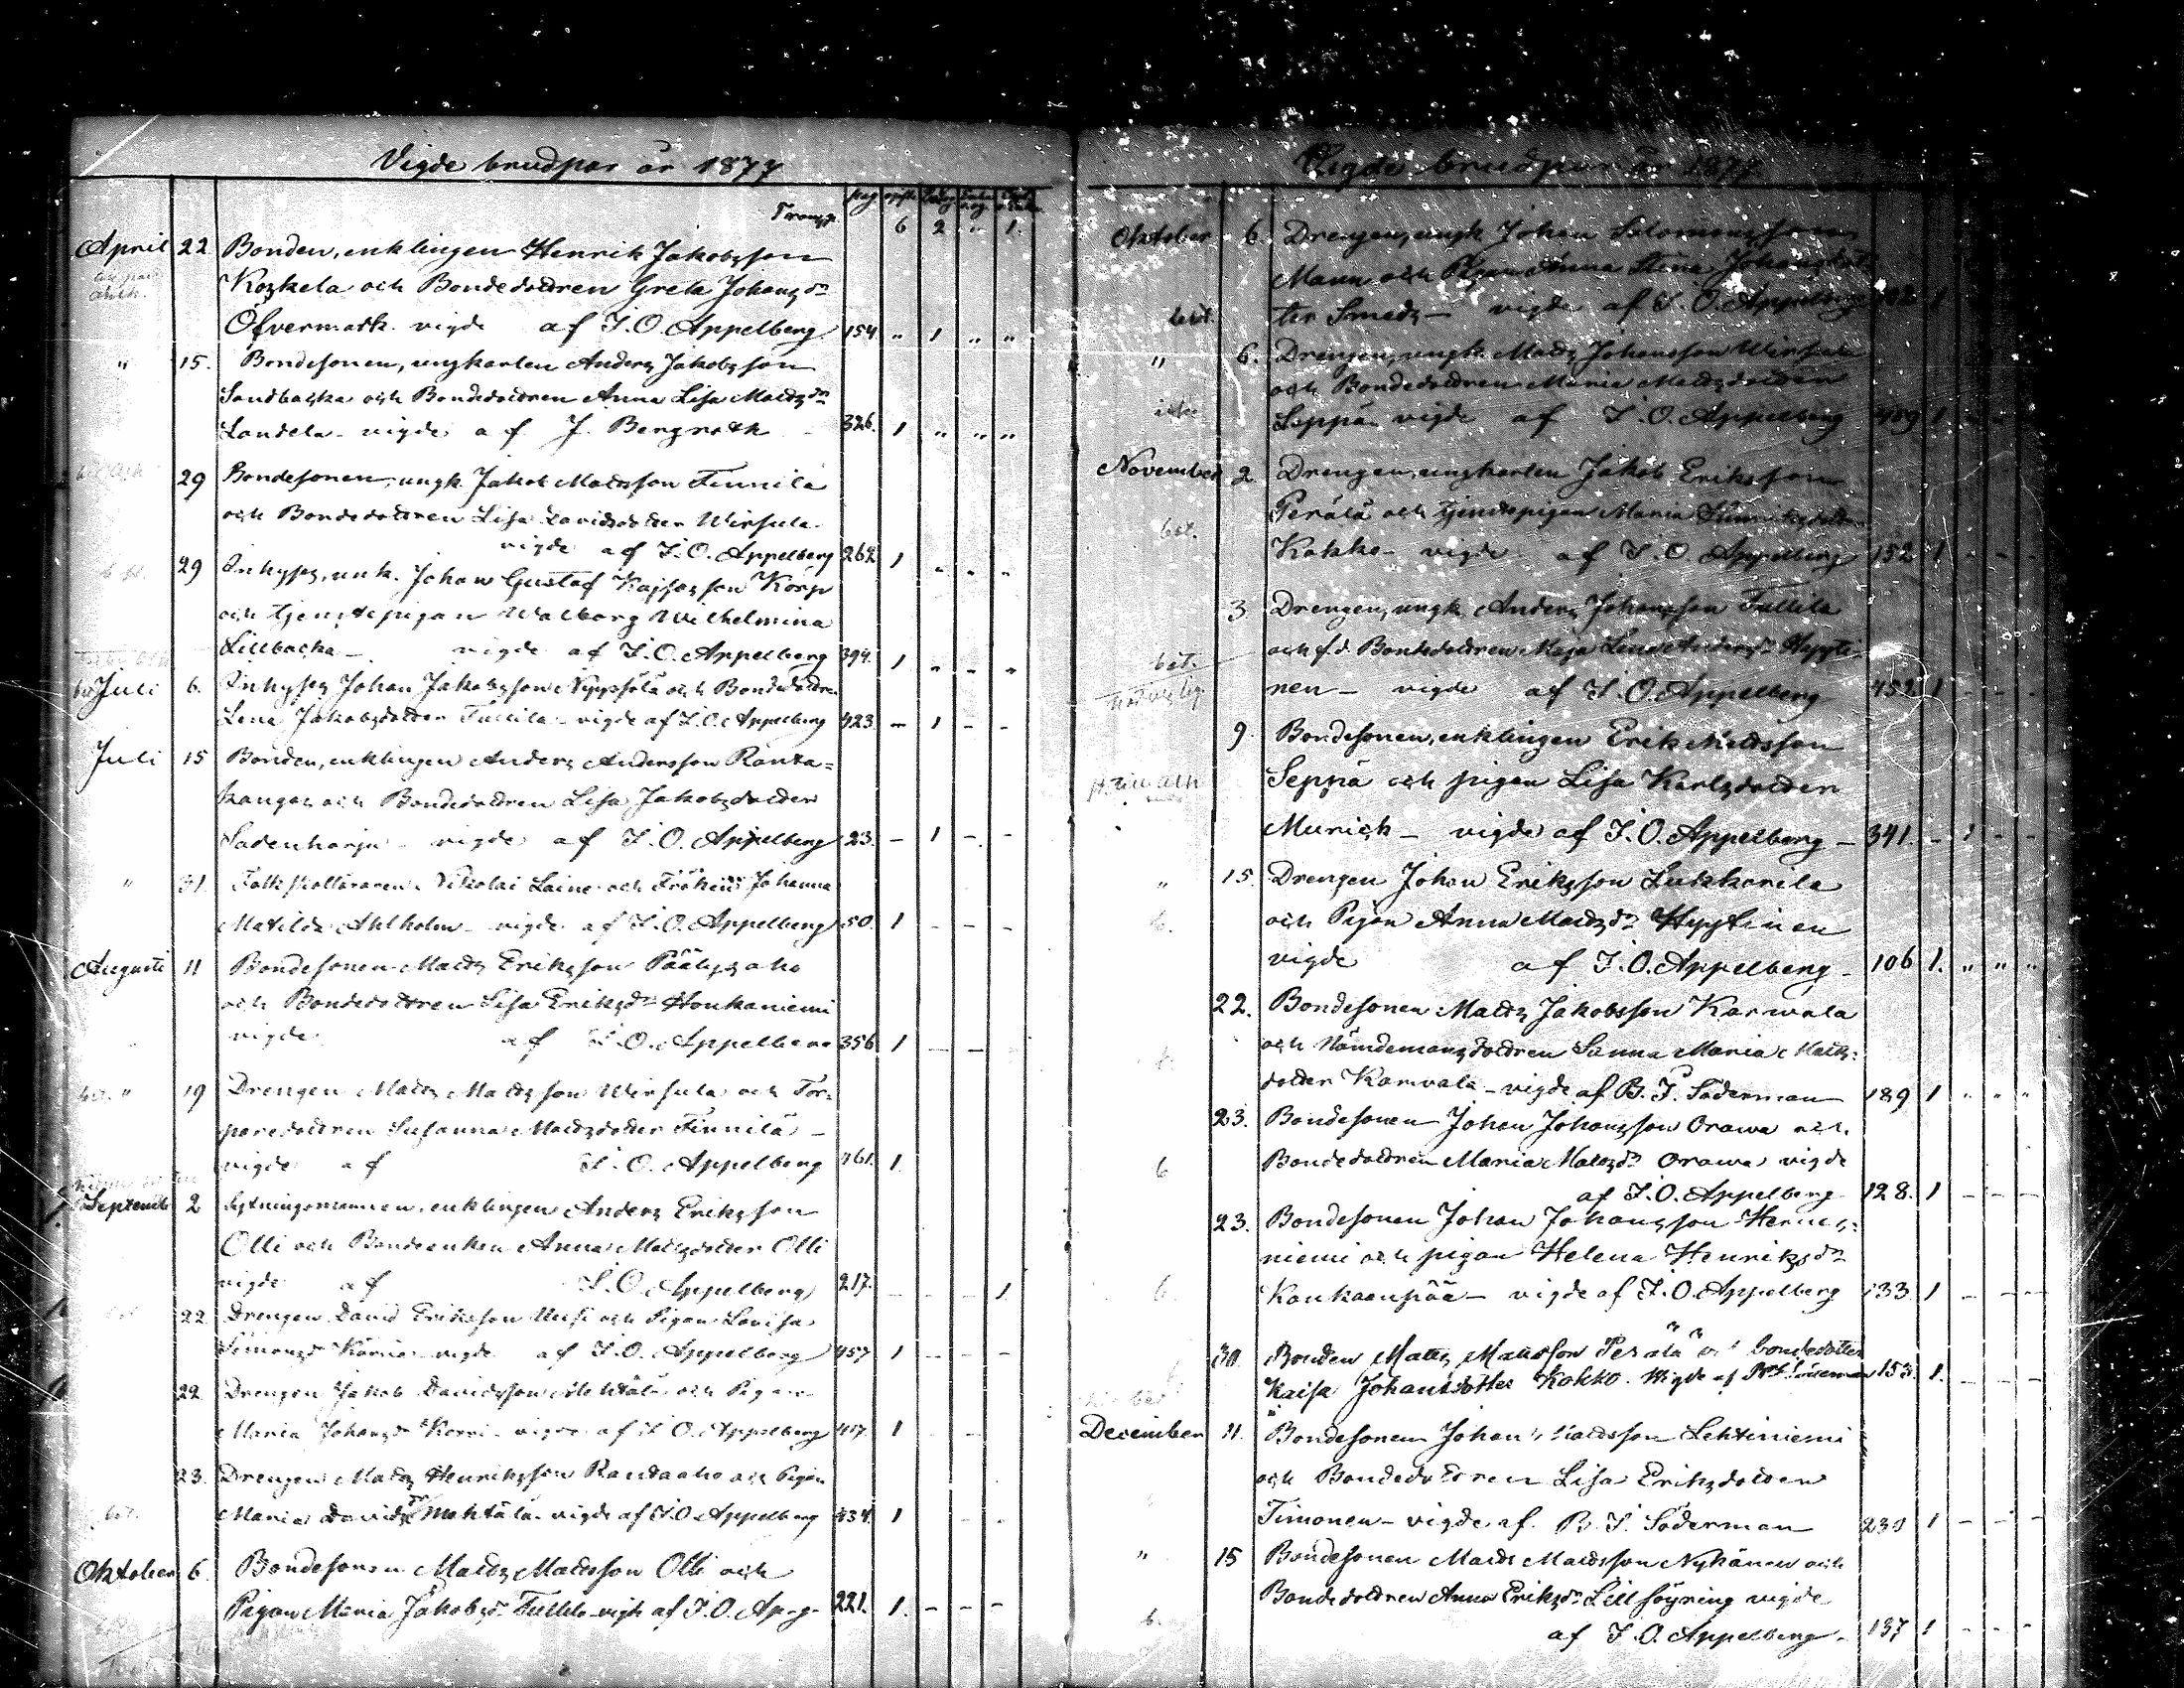 Vigde brudpar år 1877
Transp. 6 2 " 1.
April 22 Bonden, enklingen Henrik Jakobsson
Koskela och Bondedottren Greta Johansdr
Öfvermark vigde af I. O. Appelberg 154 " 1 " "
" 15. Bondesonen, ungkarlen Anders Jakobsson
Sandbacka och Bondedottren Anna Lisa Mattsdr
Landela - vigde af J. Bergroth 326. 1 " " "
29 Bondesonen, ungk. Jakob Mattsson Finnilä
och Bondedottren Lisa Davidsdotter Wirsula
vigde af I. O. Appelberg 262 1 " " "
29 Inhyses, unk. Johan Gustaf Kajsasson Korp
och tjenstepigan Walborg Wilhelmina
Lillbacka - vigde af I. O. Appelberg 394. 1 " " "
Juli 6. Inhyses Johan Jakobsson Nyppölä och Bondedottr.
Lena Jakobsdotter Tullila - vigde af I. O. Appelberg 423 - 1 - -
Juli 15 Bonden, enklingen Anders Andersson Ranta=
kangas och Bondedottren Lisa Jakobsdotter
Sadenharju - vigde af I. O. Appelberg 23. - 1 - -
" 31. Folkskolläraren Nikolai Laine och Fröken Johanna
Matilda Ahlholm - vigde af I. O. Appelberg 50. 1 - - -
Augusti 11 Bondesonen Matts Eriksson Pääligsaho
och Bondedottren Lisa Eriksdr Honkaniemi
vigde af I. O. Appelberg 356 1 - -
" 19 Drengen Matts Mattsson Wirsula och Tor=
paredottren Susanna Mattsdotter Finnilä -
vigde af I. O. Appelberg 461. 1.
September 2 enklingen Anders Eriksson
Olli och Bondeenkan Anna Mattsdotter Olli
vigde af I. O. Appelberg 217. - - - 1
22 Drengen David Eriksson och Pigan Lovisa
Simonsdr vigde af I. O. Appelberg 457 1 - - -
22 Drengen Jakob Davidsson och Pigan
Maria Johansdr vigde af I. O. Appelberg 1 - -
23. Drengen Matts Henriksson Randaaho och Pigan
Maria Davidsdr vigde af I. O. Appelberg 434. 1 - -
Oktober 6 Bondesonen Matts Mattsson Olli och
Pigan Maria Jakobsdr Tullila vigde af I. O. Ap-g- 221. 1. - - -
Vigde brudpar år 1877.
Oktober 6. Drengen, ungk. Johan Salomonsson
Mann och Pigan Anna Stina Johansdot=
ter Smeds - vigde af I. O. Appelberg 1
" 6. Drengen, ungk. Matts Johansson Wirsula
och Bondedottren Maria Mattsdotter
Seppä vigde af I. O. Appelberg 409 1 - -
November 2 Drengen, ungkarlen Jakob Eriksson
Perälä och tjenstepigan Maria
bet. Kokko - vigde af I. O. Appelberg 152 1 - -
3. Drengen, ungk. Anders Johansson Tullila
och f.d. Bondedottren Maja Lena Andersdr Hyyti=
bet. nen - vigde af I. O. Appelberg 452 1 - - -
9. Bondesonen, enklingen Erik Mattsson
Seppä och pigan Lisa Karlsdotter
Murick - vigde af I. O. Appelberg - 341. - 1 - -
" 15. Drengen Johan Eriksson Lukkarila
b. och Pigan Anna Mattsdr Hyytinen
vigde af I. O. Appelberg - 106 1. " " "
22. Bondesonen Matts Jakobsson Karwala
och Nämdemansdottren Sanna Maria Matts=
dotter Karwala - vigde af B. I. Söderman 189 1 " " "
23. Bondesonen Johan Johansson Orawa och
b Bondedottren Maria Mattsdr Orawa vigde
af I. O. Appelberg 128. 1 - - -
23. Bondesonen Johan Johansson Hernes=
niemi och pigan Helena Henriksdr
b Kankaanpää - vigde af I. O. Appelberg 133 1 - - -
30. Bonden Matts Mattsson Perälä o. bondedotter
Kaisa Johansdotter Kokko. Vigde af B. I. Söderman 153 1. - -
December 11. Bondesonen Johan Mattsson Lehtiniemi
och Bondedottren Lisa Eriksdotter
Timonen - vigde af B. I. Söderman 230 1 - - -
" 15 Bondesonen Matts Mattsson Nykänen och
Bondedottren Anna Eriksdr Lillsöyring vigde
b. af I. O. Appelberg - 137 1 - - -